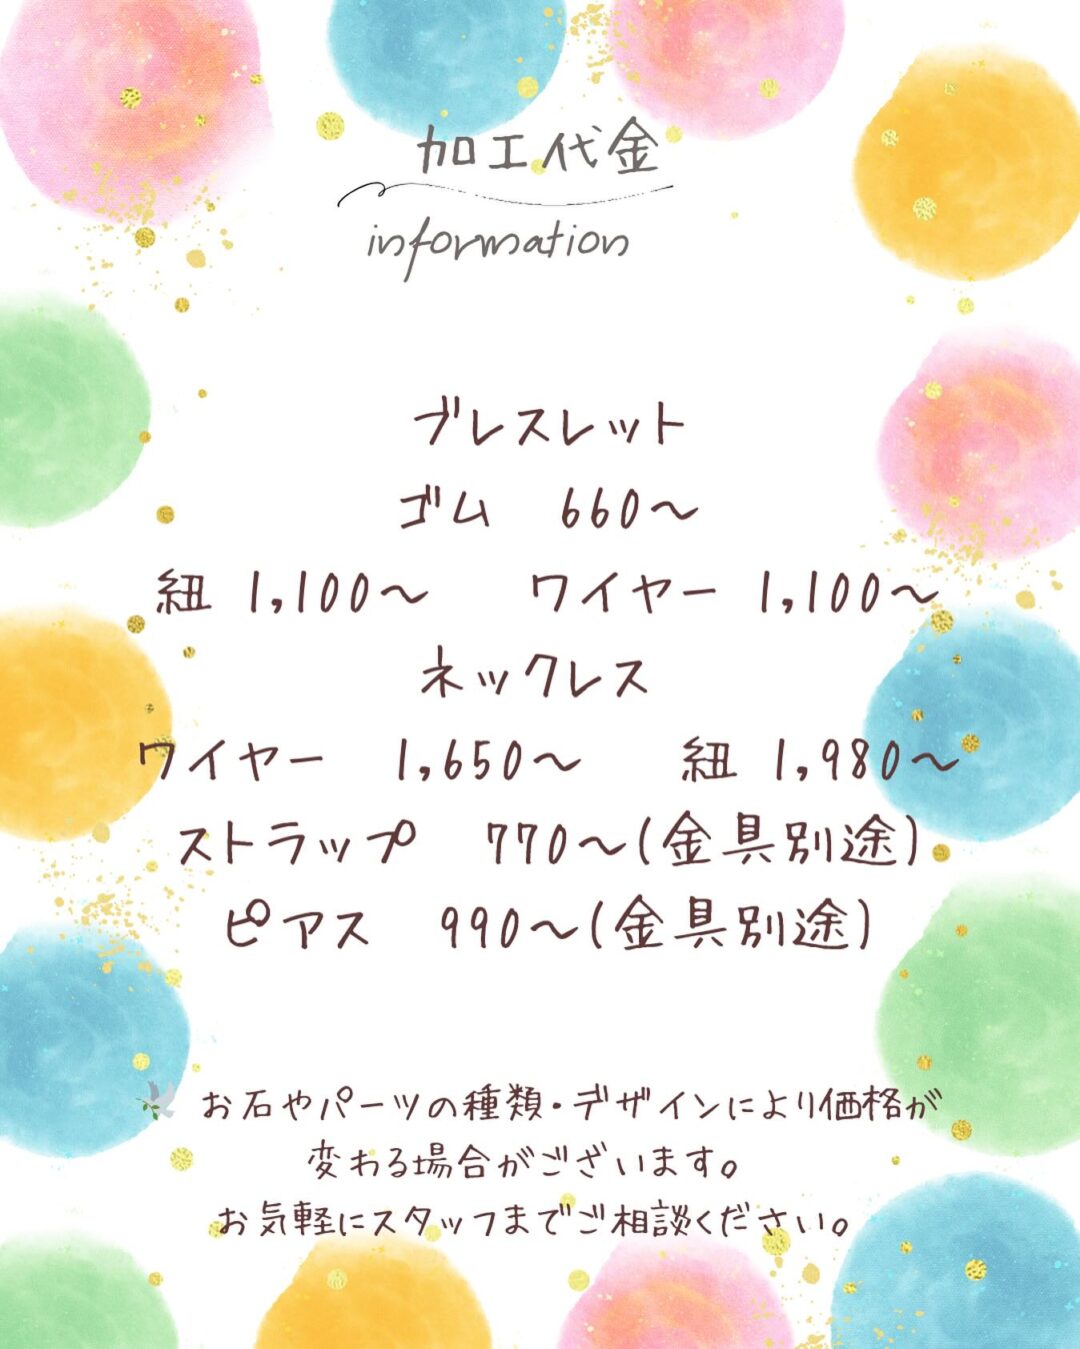 加工代金
information
ブレスレット
ゴム 660〜
紐 1,100〜 ワイヤー 1,100〜
ネックレス
ワイヤー 1,650〜 紐 1,980〜
ストラップ 770〜(金具別途)
ピアス 990〜(金具別途)
お石やパーツの種類・デザインにより価格が
変わる場合がございます。
お気軽にスタッフまでご相談ください。